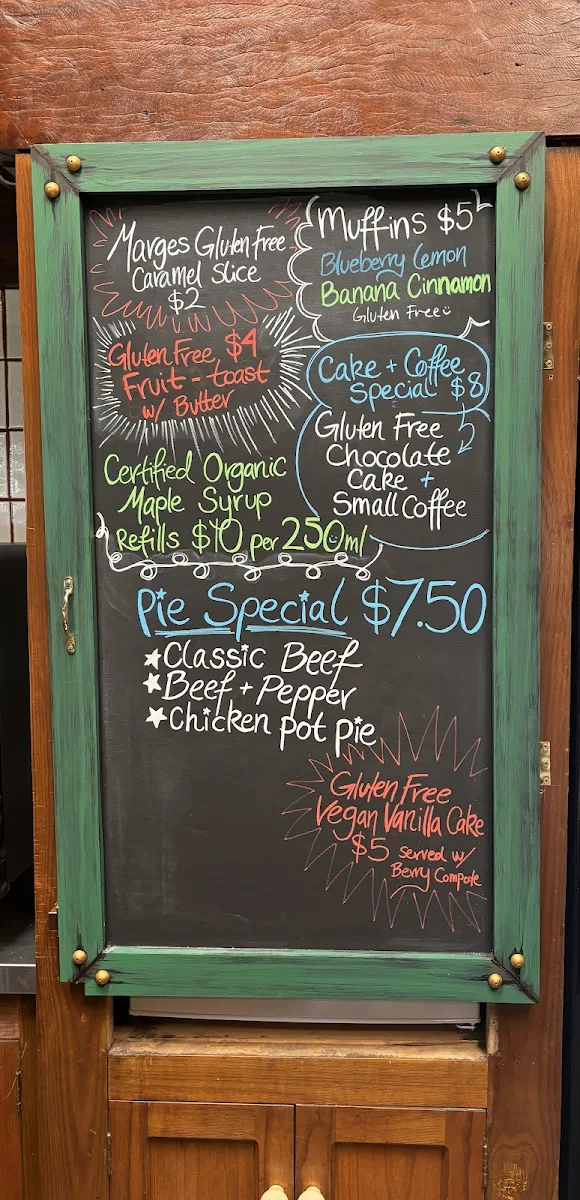 Marges Gluten Free
Caramel Slice
$2
Gluten Free $4
Fruit - toast
w/ Butter
Certified Organic
Maple Syrup
Refills $10 per 250ml
Muffins $5
Blueberry Lemon
Banana Cinnamon
Gluten Free
Cake + Coffee
Special $8
Gluten Free
Chocolate
Cake +
Small Coffee
Pie Special $7.50
Classic Beef
Beef + Pepper
Chicken pot pie
Gluten Free
Vegan Vanilla Cake
$5 served w/
Berry Compote